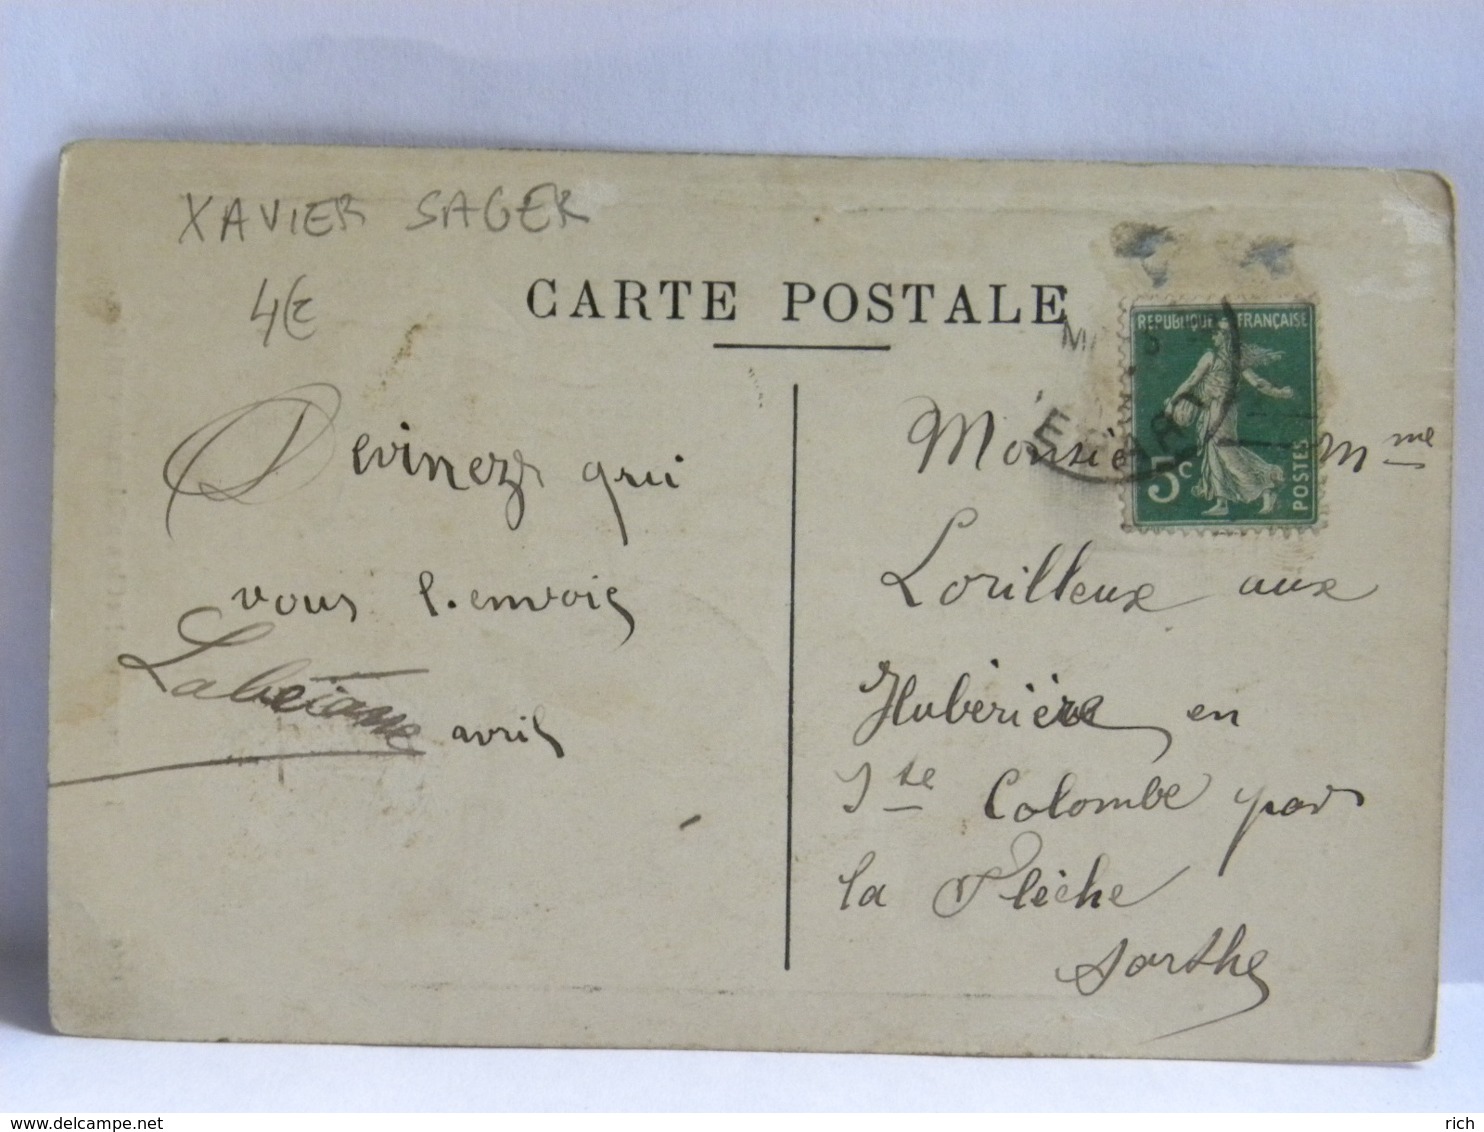 XAVIER SAGER
4€
CARTE POSTALE
REPUBLIQUE FRANÇAISE
5c
POSTES
Devinez qui
vous l.envois
avril
Monsieur Mme
Lorilleux aux
Huberière en
Ste Colombe par
la Flèche
Sarthe
delcampe.net
rich